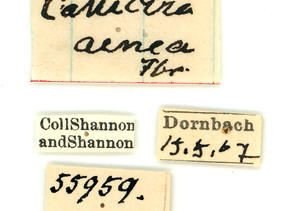 Callicera
aenea
Fbr.
CollShannon
andShannon
Dornbach
15.5.67
55959.